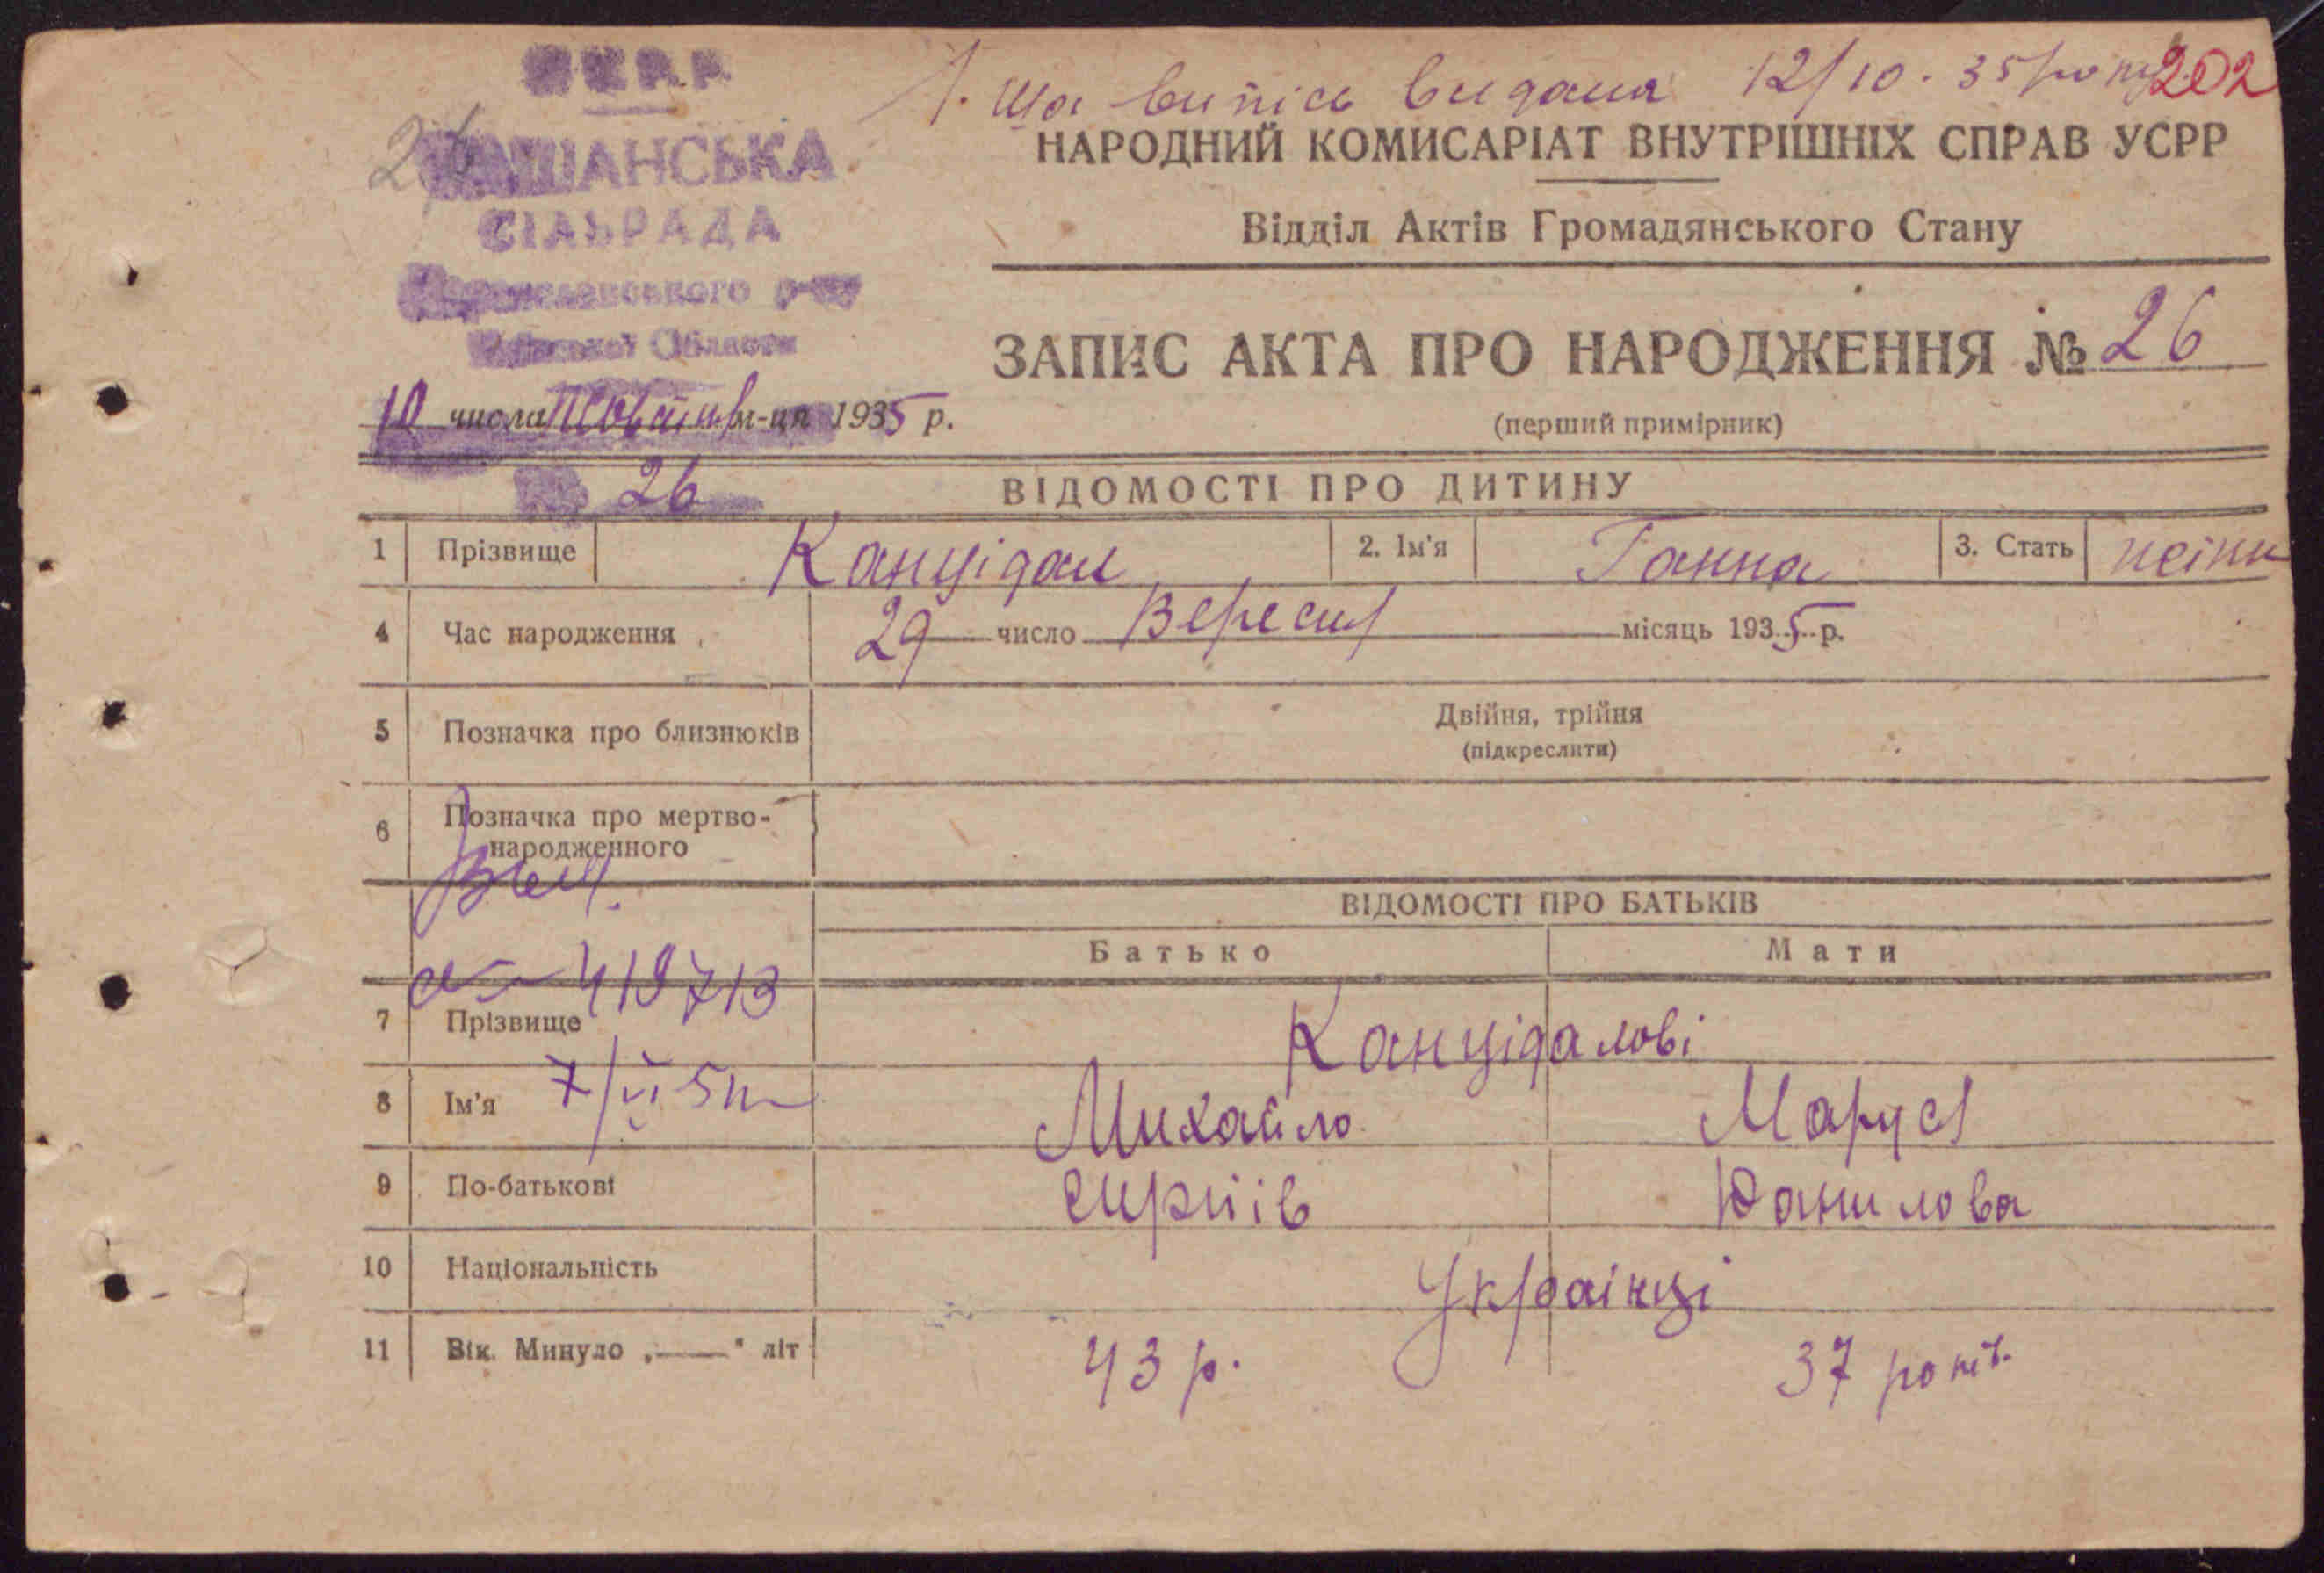 УСРР
1. ша випісь видана 12/10. 35 року 202
ШАНСЬКА
НАРОДНИЙ КОМИСАРІАТ ВНУТРІШНІХ СПРАВ УСРР
СІЛЬРАДА
Відділ Актів Громадянського Стану
Області
ЗАПИС АКТА ПРО НАРОДЖЕННЯ № 26
10 числа Жовтня м-ця 1935 р.
(перший примірник)
26
ВІДОМОСТІ ПРО ДИТИНУ
1 Прізвище Канцідал 2. Ім'я Ганна 3. Стать жіни
4 Час народження 29 число Вересня місяць 1935 р.
5 Позначка про близнюків Двійня, трійня
(підкреслити)
6 Позначка про мертво-
народженного
ВІДОМОСТІ ПРО БАТЬКІВ
Батько Мати
419713
7 Прізвище Канцідалові
8 Ім'я 7/VI 5 Михайло Маруся
9 По-батькові Сиргіів Данилова
10 Національність Українці
11 Вік. Минуло „—“ літ 43 р. 37 років.